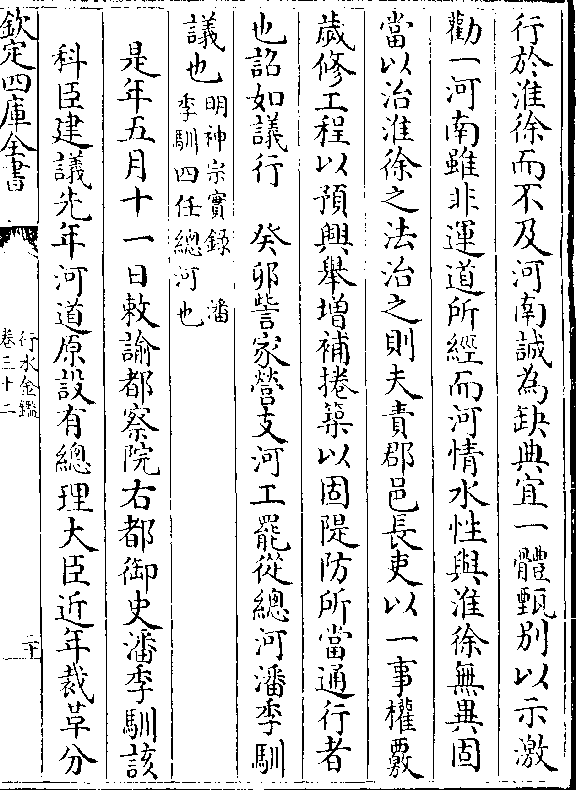 行於淮徐而不及河南誠為缺典宜一體甄别以示激
勸一河南雖非運道所經而河情水性與淮徐無異固
當以治淮徐之法治之則夫責郡邑長吏以一事權覈
歳修工程以預興舉增補捲築以固隄防所當通行者
也詔如議行　癸卯訾家營支河工罷從總河潘季馴
議也明神宗實録　潘
季馴四任總河也
是年五月十一日敕諭都察院右都御史潘季馴該
科臣建議先年河道原設有總理大臣近年裁革分
欽定四庫全書
行水金鑑
卷三十二
二十